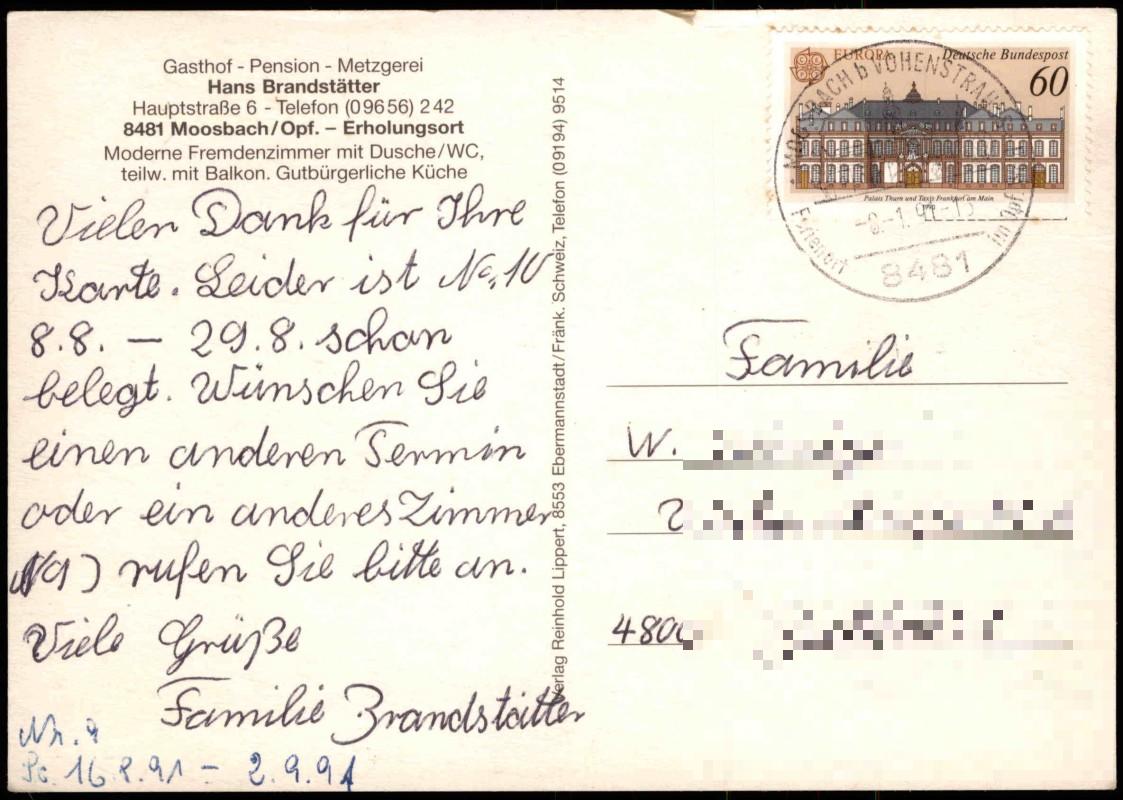 Gasthof - Pension - Metzgerei
Hans Brandstätter
Hauptstraße 6 - Telefon (09656) 242
8481 Moosbach/Opf. – Erholungsort
Moderne Fremdenzimmer mit Dusche/WC,
teilw. mit Balkon. Gutbürgerliche Küche
Vielen Dank für Ihre
Karte. Leider ist No. 10
8.8. – 29.8. schon
belegt. Wünschen Sie
einen anderen Termin
oder ein anderes Zimmer
(N9) rufen Sie bitte an.
Viele Grüße
Familie Brandstätter
Nr. 9
16.8.91 – 2.9.91
Verlag Reinhold Lippert, 8553 Ebermannstadt/Fränk. Schweiz, Telefon (09194) 9514
EUROPA Deutsche Bundespost
60
Palais Thurn und Taxis Frankfurt am Main
1990
MOOSBACH b VOHENSTRAUSS
8481
Familie
W.
480